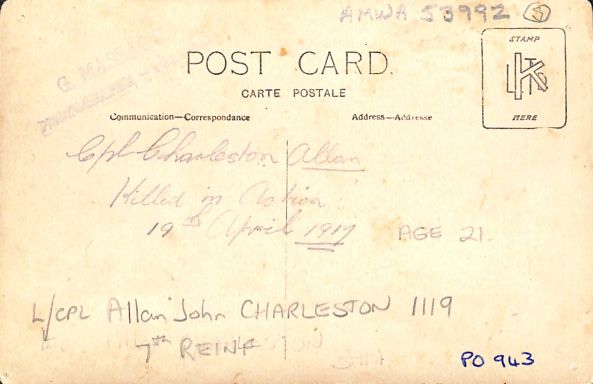 AMWA 53992 5
G. MASSA
PHOTOGRAPHER
POST CARD.
CARTE POSTALE
STAMP
HERE
Communication—Correspondance
Address—Addresse
Cpl Charleston Allan
Killed in Action
19th April 1917 AGE 21.
L/CPL Allan John CHARLESTON 1119
7th REINF
PO 943